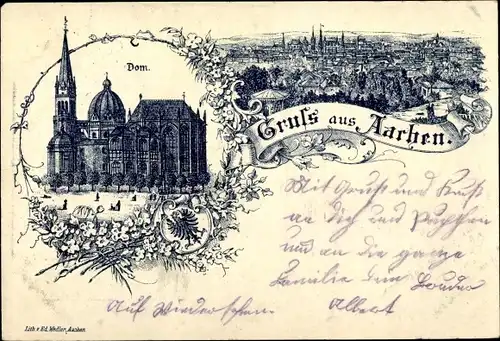 Dom.
Gruss aus Aachen.
Mit Gruß und Kuß
an Dich und
und an die ganze
Familie Dein Bruder
Auf Wiedersehen. Albert
Lith. v. Ed. Wedler, Aachen.